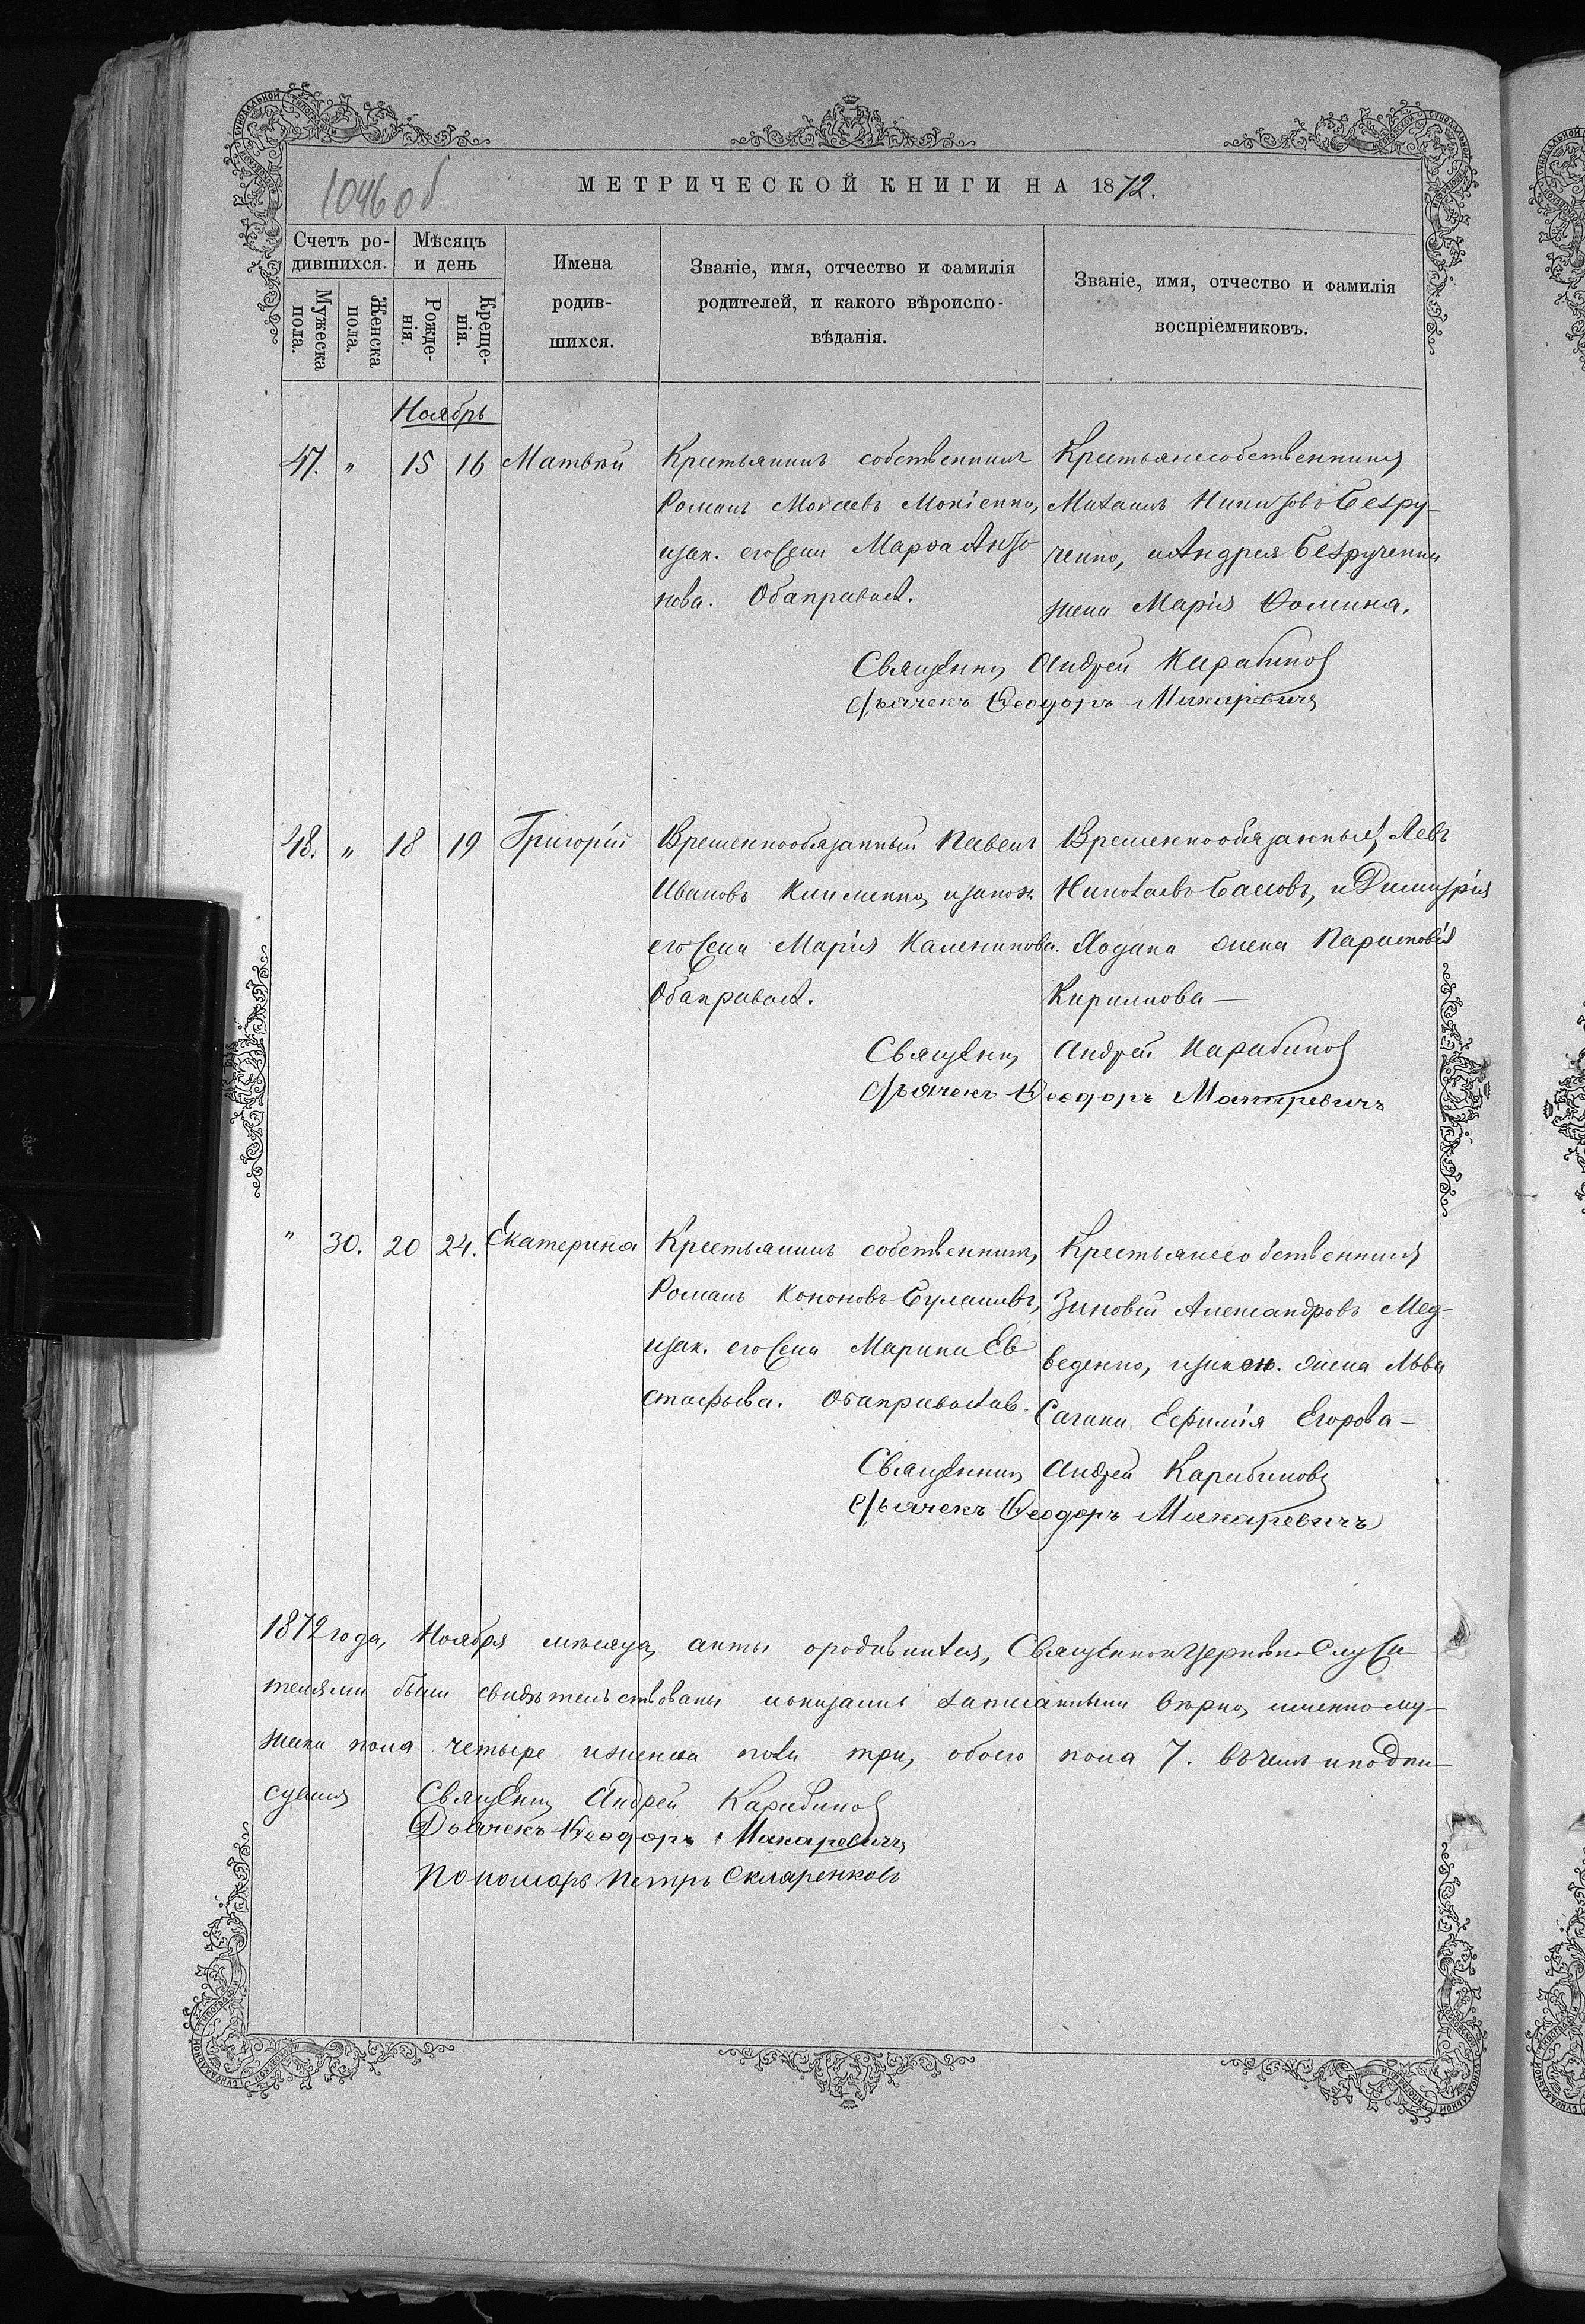 1046 об
МЕТРИЧЕСКОЙ КНИГИ НА 1872.
Счетъ ро-
дившихся.
Мѣсяцъ
и день
Мужеска
пола.
Женска
пола.
Рожде-
нія.
Креще-
нія.
Имена
родив-
шихся.
Званіе, имя, отчество и фамилія
родителей, и какого вѣроиспо-
вѣданія.
Званіе, имя, отчество и фамилія
воспріемниковъ.
Ноябрь
47. " 15 16 Матвѣй
Крестьянинъ собственникъ
Романъ Моѵсеевъ Мокіенко,
изак. его жена Марѳа Анто
нова. Оба правосл.
Крестьяне собственники
Михаилъ Никитовъ Безру-
ченко, и Андрея Безрученки
жена Марія Ѳомина.
Священник Андрей Карабинов
Дьячекъ Ѳеодоръ Макаревичъ
48. " 18 19 Григорій
Временнообязанный Павелъ
Ивановъ Клименко, изакон.
его жена Марія Каленикова.
Оба правосл.
Временнообязанные, Левъ
Николаевъ Басовъ, и Димитрія
Ходана жена Парасковія
Кирилкова —
Священник Андрей Карабинов
Дьячекъ Ѳеодоръ Макаревичъ
" 30. 20 24. Екатерина
Крестьянинъ собственникъ,
Романъ Кононовъ
изак. его жена Марина Ев
стафьева. Оба православ.
Крестьяне собственники
Зиновій Александровъ Мед-
веденко, жена Льва
Сагана Ефимія Егорова —
Священник Андрей Карабиновъ
Дьячекъ Ѳеодоръ Макаревичъ
1872 года, Ноября мѣсяца, акты о родившихся, Священно и Церковно Служи-
телями были свидѣтельствованы и оказались записанными вѣрно, именно му-
жска пола четыре и женска пола три, обоего пола 7. въ чемъ и подпи-
суемся Священник Андрей Карабинов
Дьячекъ Ѳеодоръ Макаревичъ
Пономарь Петръ Скляренковъ